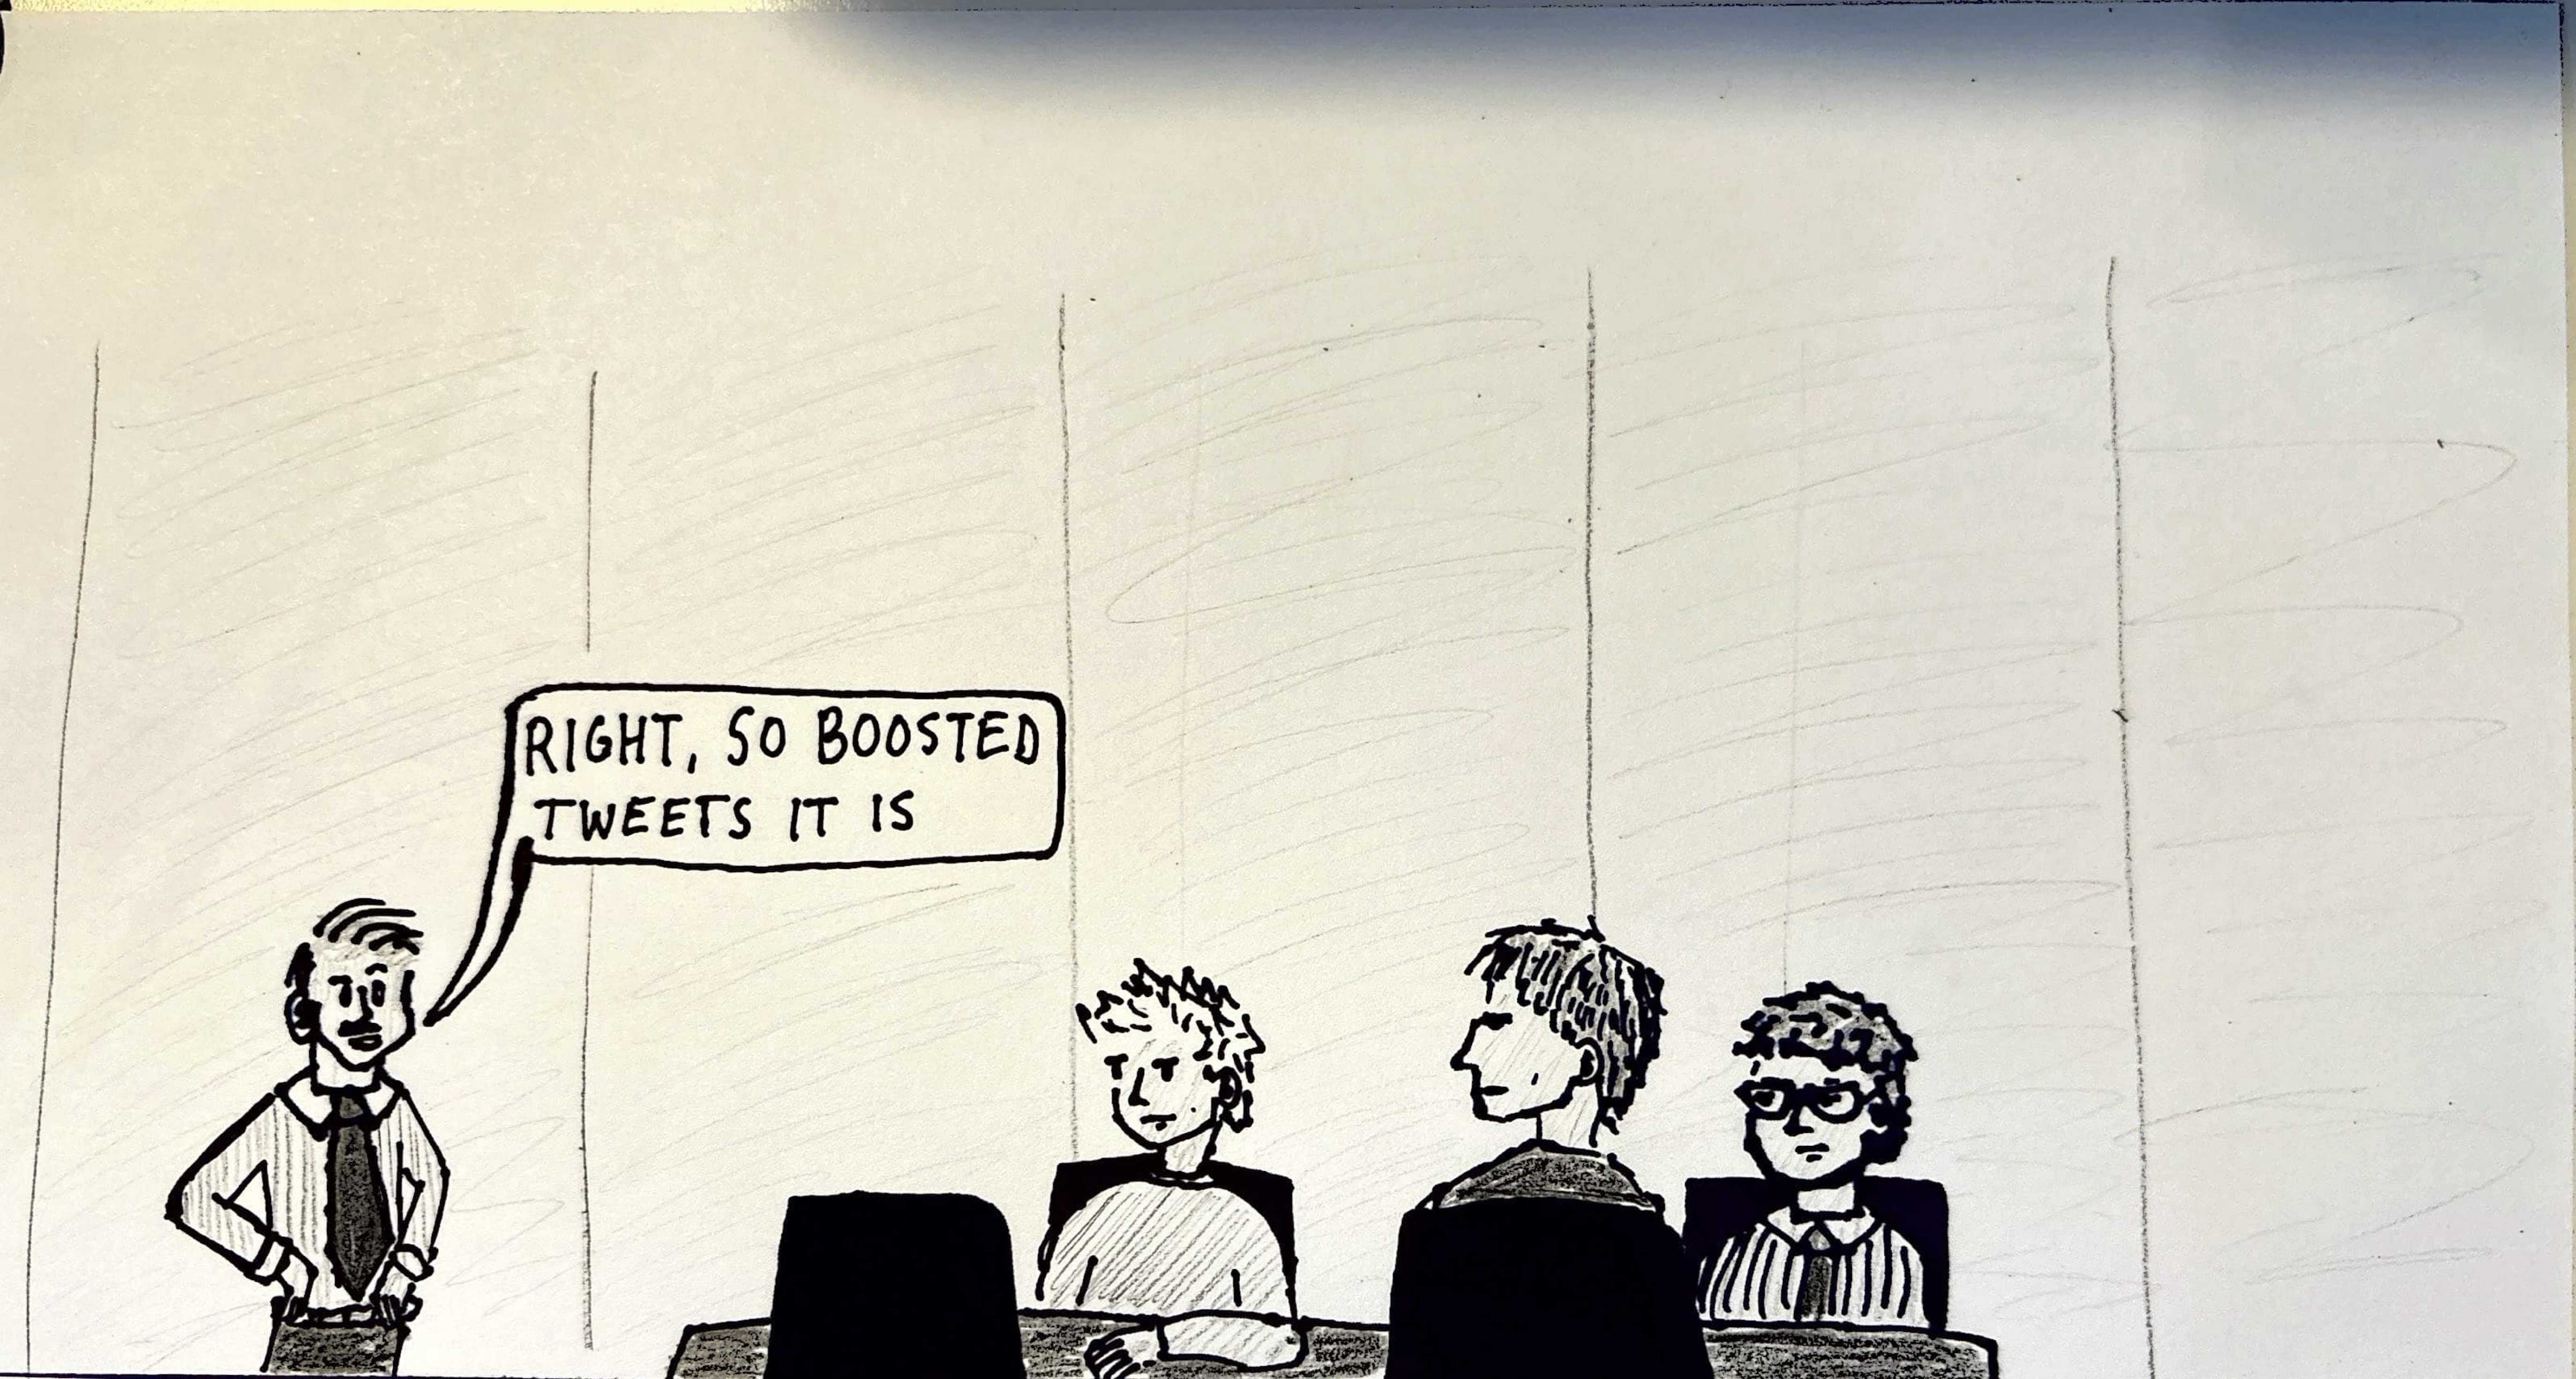 RIGHT, SO BOOSTED
TWEETS IT IS